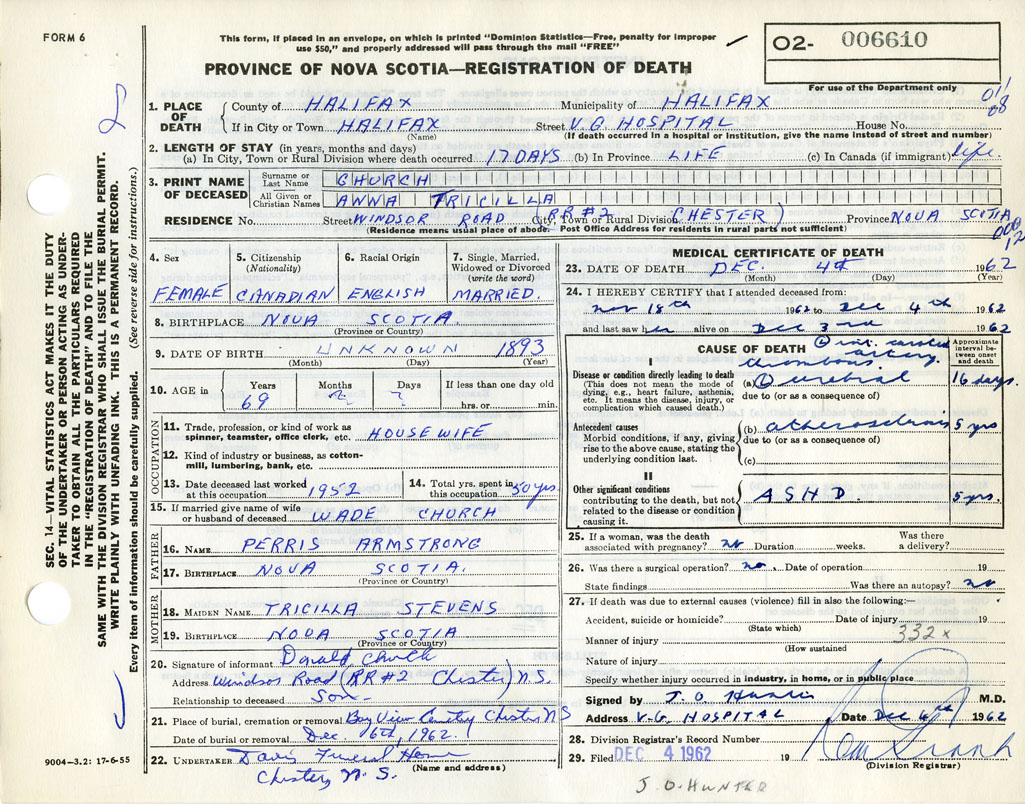 FORM 6
This form, if placed in an envelope, on which is printed "Dominion Statistics—Free, penalty for improper
use $50," and properly addressed will pass through the mail "FREE"
O2- 006610
PROVINCE OF NOVA SCOTIA—REGISTRATION OF DEATH
For use of the Department only
1. PLACE OF DEATH
County of HALIFAX Municipality of HALIFAX
If in City or Town HALIFAX Street V.G. HOSPITAL House No.
(Name) (If death occurred in a hospital or institution, give the name instead of street and number)
2. LENGTH OF STAY (in years, months and days)
(a) In City, Town or Rural Division where death occurred 17 DAYS (b) In Province LIFE (c) In Canada (if immigrant) life
3. PRINT NAME OF DECEASED
Surname or Last Name CHURCH
All Given or Christian Names ANNA TRICILLA
RESIDENCE No. Street WINDSOR ROAD City, Town or Rural Division (RR #2 CHESTER) Province NOVA SCOTIA
(Residence means usual place of abode. Post Office Address for residents in rural parts not sufficient)
4. Sex
FEMALE
5. Citizenship (Nationality)
CANADIAN
6. Racial Origin
ENGLISH
7. Single, Married, Widowed or Divorced (write the word)
MARRIED.
8. BIRTHPLACE NOVA SCOTIA.
(Province or Country)
9. DATE OF BIRTH UNKNOWN 1893
(Month) (Day) (Year)
10. AGE in
Years Months Days If less than one day old
69 ? ? hrs. or min.
OCCUPATION
11. Trade, profession, or kind of work as
spinner, teamster, office clerk, etc. HOUSEWIFE
12. Kind of industry or business, as cotton-
mill, lumbering, bank, etc.
13. Date deceased last worked
at this occupation 1952
14. Total yrs. spent in
this occupation 50 yrs.
15. If married give name of wife
or husband of deceased WADE CHURCH
FATHER
16. NAME PERRIS ARMSTRONG
17. BIRTHPLACE NOVA SCOTIA.
(Province or Country)
MOTHER
18. MAIDEN NAME TRICILLA STEVENS
19. BIRTHPLACE NOVA SCOTIA
(Province or Country)
20. Signature of informant Donald Church
Address Windsor Road (RR #2 Chester) N.S.
Relationship to deceased Son
21. Place of burial, cremation or removal Bay View Cemetery Chester N S
Date of burial or removal Dec. 6th, 1962.
22. UNDERTAKER Davis Funeral Home
(Name and address)
Chester, N. S.
MEDICAL CERTIFICATE OF DEATH
23. DATE OF DEATH DEC. 4th 1962
(Month) (Day) (Year)
24. I HEREBY CERTIFY that I attended deceased from:
Nov 18th 1962 to Dec 4th 1962
and last saw her alive on Dec 3rd 1962
CAUSE OF DEATH
Approximate interval between onset and death
int. carotid
artery
thrombosis.
I
Disease or condition directly leading to death
(This does not mean the mode of
dying, e.g., heart failure, asthenia,
etc. It means the disease, injury, or
complication which caused death.)
(a) cerebral 16 days.
due to (or as a consequence of)
Antecedent causes
Morbid conditions, if any, giving
rise to the above cause, stating the
underlying condition last.
(b) atherosclerosis 5 yrs
due to (or as a consequence of)
(c)
II
Other significant conditions
contributing to the death, but not
related to the disease or condition
causing it.
ASHD. 5 yrs.
25. If a woman, was the death
associated with pregnancy? no Duration weeks. Was there a delivery?
26. Was there a surgical operation? no. Date of operation 19
State findings Was there an autopsy? no
27. If death was due to external causes (violence) fill in also the following:—
Accident, suicide or homicide? Date of injury 19
(State which)
332 x
Manner of injury
(How sustained
Nature of injury
Specify whether injury occurred in industry, in home, or in public place
Signed by J. O. Hunter M.D.
Address V.G. HOSPITAL Date Dec 4th 1962
28. Division Registrar's Record Number
29. Filed DEC 4 1962 19
(Division Registrar)
J. O. HUNTER
9004—3.2: 17-6-55
SEC. 14—VITAL STATISTICS ACT MAKES IT THE DUTY
OF THE UNDERTAKER OR PERSON ACTING AS UNDER-
TAKER TO OBTAIN ALL THE PARTICULARS REQUIRED
IN THE "REGISTRATION OF DEATH" AND TO FILE THE
SAME WITH THE DIVISION REGISTRAR WHO SHALL ISSUE THE BURIAL PERMIT.
WRITE PLAINLY WITH UNFADING INK. THIS IS A PERMANENT RECORD.
Every item of information should be carefully supplied. (See reverse side for instructions.)